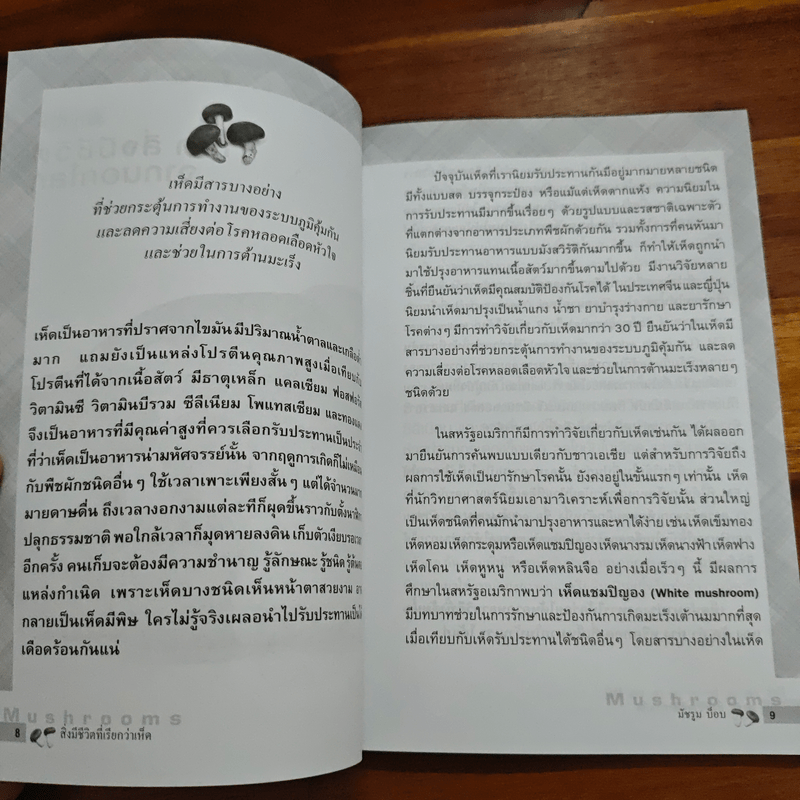 เห็ดมีสารบางอย่าง
ที่ช่วยกระตุ้นการทำงานของระบบภูมิคุ้มกัน
และลดความเสี่ยงต่อโรคหลอดเลือดหัวใจ
และช่วยในการต้านมะเร็ง
เห็ดเป็นอาหารที่ปราศจากไขมัน มีปริมาณน้ำตาลและเกลือ
มาก แถมยังเป็นแหล่งโปรตีนคุณภาพสูงเมื่อเทียบกับ
โปรตีนที่ได้จากเนื้อสัตว์ มีธาตุเหล็ก แคลเซียม
วิตามินซี วิตามินบีรวม ซีลีเนียม โพแทสเซียม และทองแดง
จึงเป็นอาหารที่มีคุณค่าสูงที่ควรเลือกรับประทานเป็น
ที่ว่าเห็ดเป็นอาหารน่ามหัศจรรย์นั้น จากฤดูการเกิดก็ไม่เหมือน
กับพืชผักชนิดอื่นๆ ใช้เวลาเพาะเพียงสั้นๆ แต่ได้จำนวน
มายดาษดื่น ถึงเวลางอกงามแต่ละทีก็ผุดขึ้นราวกับตั้งนาฬิกา
ปลุกธรรมชาติ พอใกล้เวลาก็มุดหายลงดิน เก็บตัวเงียบรอเวลา
อีกครั้ง คนเก็บจะต้องมีความชำนาญ รู้ลักษณะ รู้ชนิด
แหล่งกำเนิด เพราะเห็ดบางชนิดเห็นหน้าตาสวยงาม
กลายเป็นเห็ดมีพิษ ใครไม่รู้จริงเผลอนำไปรับประทาน
เดือดร้อนกันแน่
Mushrooms
8 สิ่งมีชีวิตที่เรียกว่าเห็ด
ปัจจุบันเห็ดที่เรานิยมรับประทานกันมีอยู่มากมายหลายชนิด
มีทั้งแบบสด บรรจุกระป๋อง หรือแม้แต่เห็ดตากแห้ง ความนิยมใน
การรับประทานมีมากขึ้นเรื่อยๆ ด้วยรูปแบบและรสชาติเฉพาะตัว
ที่แตกต่างจากอาหารประเภทพืชผักด้วยกัน รวมทั้งการที่คนหันมา
นิยมรับประทานอาหารแบบมังสวิรัติกันมากขึ้น ก็ทำให้เห็ดถูกนำ
มาใช้ปรุงอาหารแทนเนื้อสัตว์มากขึ้นตามไปด้วย มีงานวิจัยหลาย
ชิ้นที่ยืนยันว่าเห็ดมีคุณสมบัติป้องกันโรคได้ ในประเทศจีน และญี่ปุ่น
นิยมนำเห็ดมาปรุงเป็นน้ำแกง น้ำชา ยาบำรุงร่างกาย และยารักษา
โรคต่างๆ มีการทำวิจัยเกี่ยวกับเห็ดมากว่า 30 ปี ยืนยันว่าในเห็ดมี
สารบางอย่างที่ช่วยกระตุ้นการทำงานของระบบภูมิคุ้มกัน และลด
ความเสี่ยงต่อโรคหลอดเลือดหัวใจ และช่วยในการต้านมะเร็งหลายๆ
ชนิดด้วย
ในสหรัฐอเมริกาก็มีการทำวิจัยเกี่ยวกับเห็ดเช่นกัน ได้ผลออก
มายืนยันการค้นพบแบบเดียวกับชาวเอเชีย แต่สำหรับการวิจัยถึง
ผลการใช้เห็ดเป็นยารักษาโรคนั้น ยังคงอยู่ในขั้นแรกๆ เท่านั้น เห็ด
ที่นักวิทยาศาสตร์นิยมเอามาวิเคราะห์เพื่อการวิจัยนั้น ส่วนใหญ่
เป็นเห็ดชนิดที่คนมักนำมาปรุงอาหารและหาได้ง่าย เช่น เห็ดเข็มทอง
เห็ดหอม เห็ดกระดุมหรือเห็ดแชมปิญอง เห็ดนางรม เห็ดนางฟ้า เห็ดฟาง
เห็ดโคน เห็ดหูหนู หรือเห็ดหลินจือ อย่างเมื่อเร็วๆ นี้ มีผลการ
ศึกษาในสหรัฐอเมริกาพบว่า เห็ดแชมปิญอง (White mushroom)
มีบทบาทช่วยในการรักษาและป้องกันการเกิดมะเร็งเต้านมมากที่สุด
เมื่อเทียบกับเห็ดรับประทานได้ชนิดอื่นๆ โดยสารบางอย่างในเห็ด
Mushrooms
มัชรูม บ็อบ 9